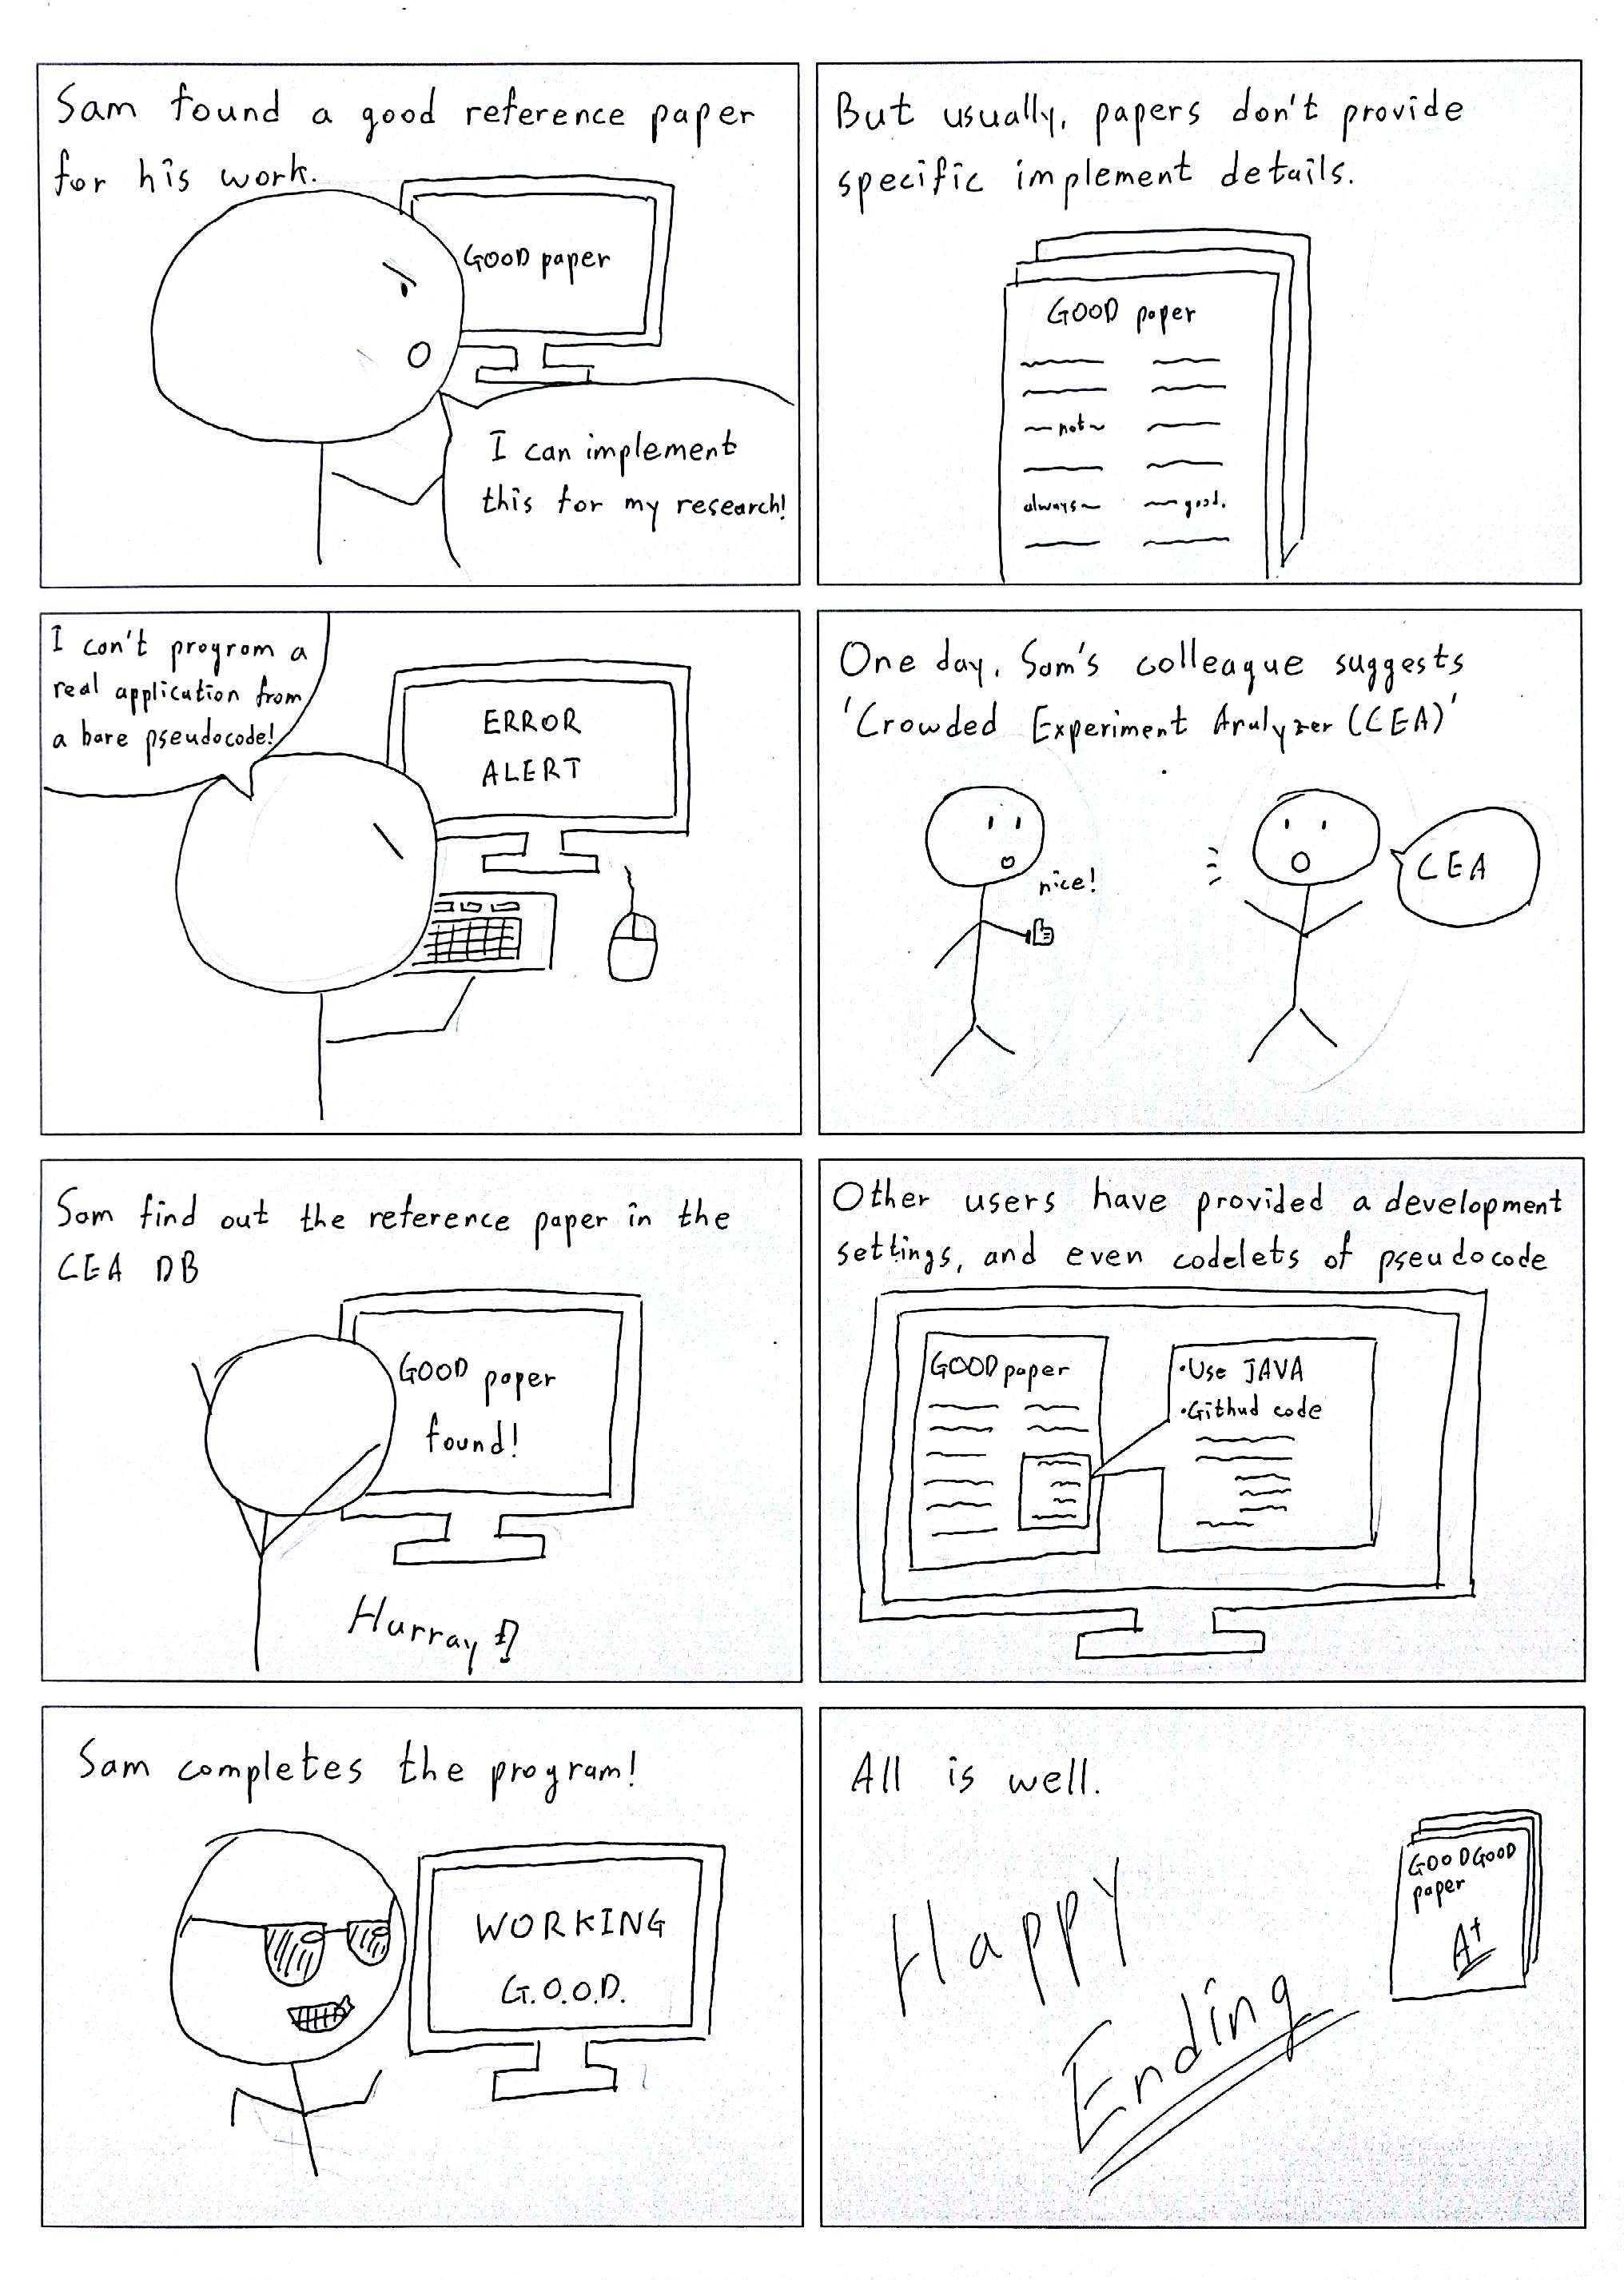 Sam found a good reference paper
for his work.
GOOD paper
I can implement
this for my research!
But usually, papers don't provide
specific implement details.
GOOD paper
not
always
good.
I can't program a
real application from
a bare pseudocode!
ERROR
ALERT
One day, Sam's colleague suggests
'Crowded Experiment Analyzer (CEA)'
nice!
CEA
Sam find out the reference paper in the
CEA DB
GOOD paper
found!
Hurray!!
Other users have provided a development
settings, and even codelets of pseudocode
GOOD paper
•Use JAVA
•Githud code
Sam completes the program!
WORKING
G.O.O.D.
All is well.
GOODGOOD
paper
A+
Happy
Ending